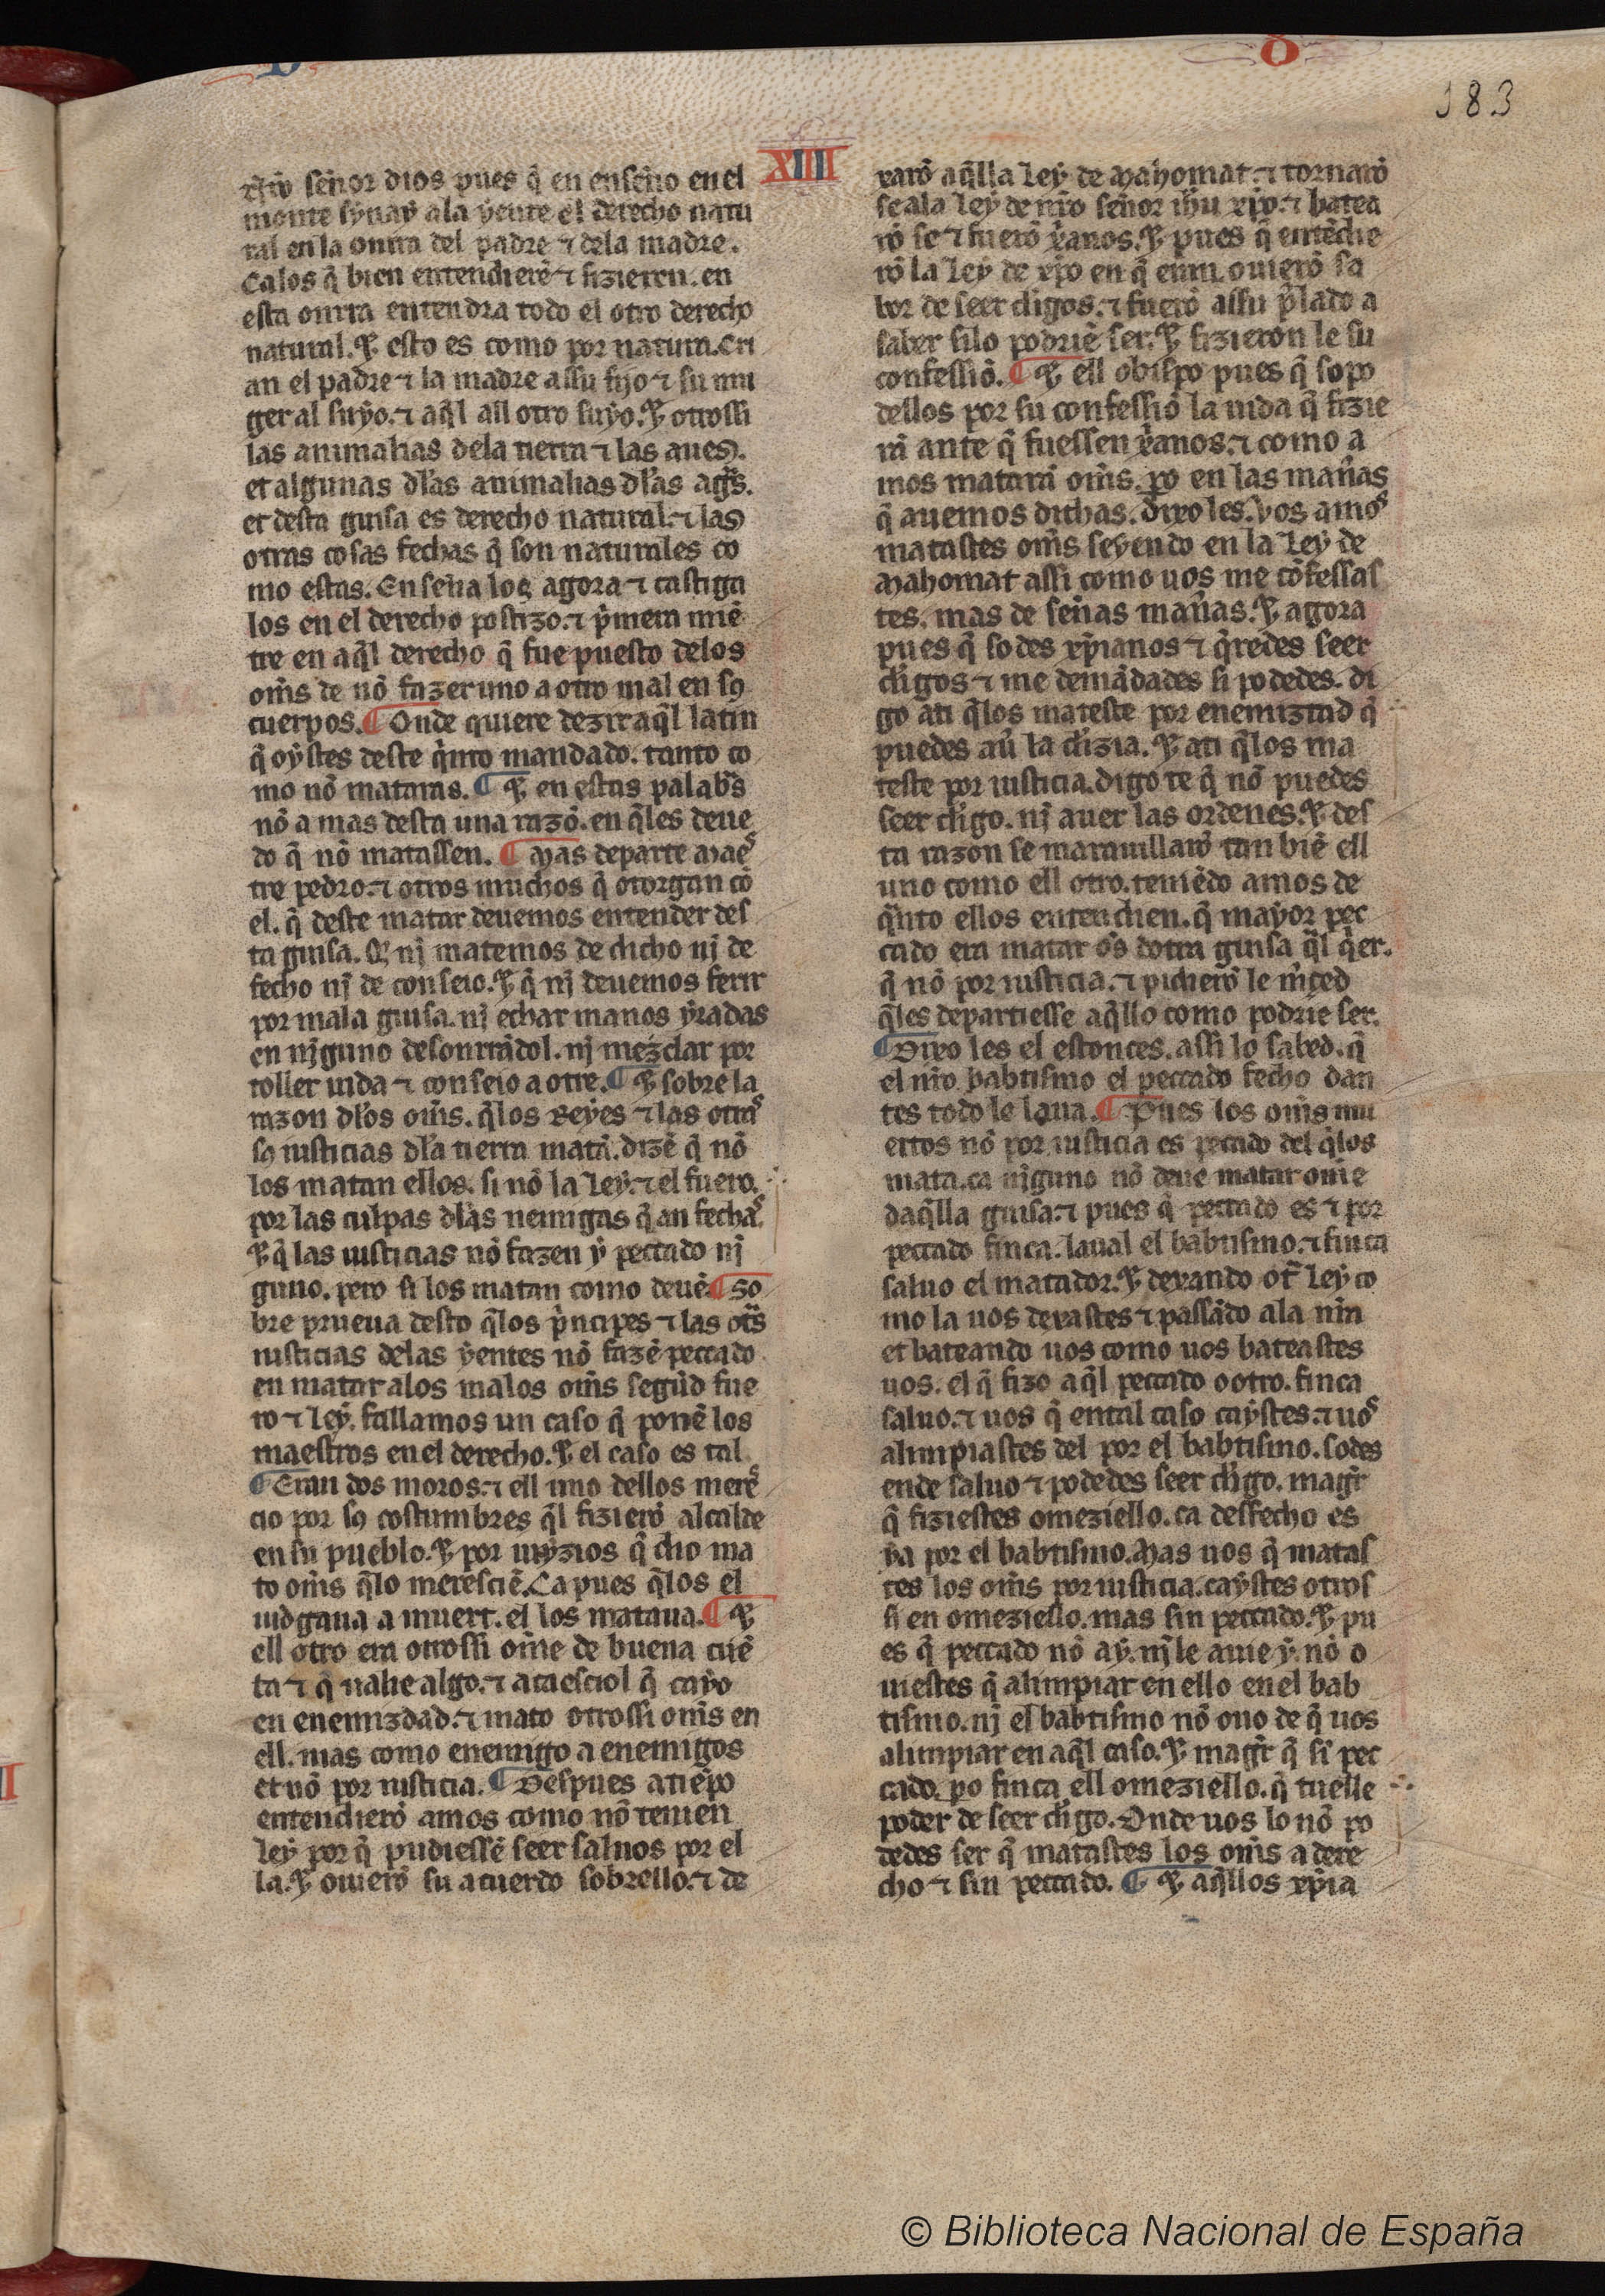 183
XIIII
señor dios pues q̃ en enseño en el
monte synay ala yente el derecho natu
ral en la onrra del padre ⁊ dela madre.
Ca los q̃ bien entendierẽ ⁊ fizieren. en
esta onrra entendra todo el otro derecho
natural. ⁊ esto es como por natura. Cri
an el padre ⁊ la madre assu fijo ⁊ su mu
ger al suyo. ⁊ aq̃l all otro suyo. ⁊ otrossi
las animalias dela tierra ⁊ las aues.
et algunas dl̃as animalias dl̃as agũs.
et desta guisa es derecho natural. ⁊ las
otras cosas fechas q̃ son naturales co
mo estas. Enseña los agora ⁊ castiga
los en el derecho postizo. ⁊ p̃mera miẽ
tre en aq̃l derecho q̃ fue puesto delos
om̃s de nõ fazer uno a otro mal en sꝰ
cuerpos. ¶ Onde quiere dezir aq̃l latin
q̃ oystes deste q̃nto mandado. tanto co
mo nõ mataras. ¶ ⁊ en estas palabr̃s
nõ a mas desta una razõ. en q̃les deue
do q̃ nõ matassen. ¶ Mas departe maeˢ
tre pedro. ⁊ otros muchos q̃ otorgan cõ
el. q̃ deste matar deuemos entender des
ta guisa. Q̃ nj matemos de dicho nj de
fecho nj de conseio. ⁊ q̃ nj deuemos ferir
por mala guisa. nj echar manos yradas
en njguno desonrrãdol. nj mezclar por
toller uida ⁊ conseio a otre. ¶ ⁊ sobre la
razon dl̃os om̃s. q̃los Reyes ⁊ las otraˢ
sꝰ iusticias dl̃a tierra matã. dizẽ q̃ nõ
los matan ellos. si nõ la ley. ⁊ el fuero.
por las culpas dl̃as nemigas q̃ an fechaˢ.
⁊ q̃ las iusticias nõ fazen y peccado nj
guno. pero si los matan como deuẽ. ¶ So
bre prueua desto q̃los p̃ncipes ⁊ las otr̃s
iusticias delas yentes nõ fazẽ peccado
en matar alos malos om̃s segũd fue
ro ⁊ ley. fallamos un caso q̃ ponẽ los
maestros en el derecho. ⁊ el caso es tal
¶ Eran dos moros. ⁊ ell uno dellos mereˢ
cio por sꝰ costumbres q̃l fizierõ alcalde
en su pueblo. ⁊ por iuyzios q̃ dio ma
to om̃s q̃lo meresciẽ. Ca pues q̃los el
iudgaua a muert. el los mataua. ¶ ⁊
ell otro era otrossi om̃e de buena cuẽ
ta ⁊ q̃ ualie algo. ⁊ acaesciol q̃ cayo
en enemizdad. ⁊ mato otrossi om̃s en
ell. mas como enemigo a enemigos
et nõ por iusticia. ¶ Despues a tiẽpo
entendierõ amos como nõ tenien
ley por q̃ pudiessẽ seer saluos por el
la. ⁊ ouierõ su acuerdo sobrello. ⁊ de
xarõ aq̃lla ley de Mahomat. ⁊ tornarõ
se ala ley de nr̃o señor ihũ xp̃o. ⁊ batea
rõ se ⁊ fuerõ xp̃anos. ⁊ pues q̃ entẽdie
rõ la ley de xp̃o en q̃ era. ouierõ sa
bor de seer cl̃igos. ⁊ fuerõ assu p̃lado a
saber silo podriẽ ser. ⁊ fizieron le su
confessiõ. ¶ ⁊ ell obispo pues q̃ sopo
dellos por su confessiõ la uida q̃ fizie
rã ante q̃ fuessen xp̃anos. ⁊ como a
mos matarã om̃s. ꝑo en las mañas
q̃ auemos dichas. dixo les. Vos amoˢ
matastes om̃s seyendo en la ley de
Mahomat assi como uos me cõfessas
tes. mas de señas mañas. ⁊ agora
pues q̃ sodes xp̃ianos ⁊ q̃redes seer
cl̃igos ⁊ me demãdades si podedes. di
go a ti q̃los mateste por enemiztad q̃
puedes aũ la cl̃izia. ⁊ a ti q̃los ma
teste por iusticia. digo te q̃ nõ puedes
seer cl̃igo. nj auer las ordenes. ⁊ des
ta razon se marauillarõ tan biẽ ell
uno como ell otro. teniẽdo amos de
q̃nto ellos entendien. q̃ mayor pec
cado era matar om̃s dotra guisa q̃l q̃er.
q̃ nõ por iusticia. ⁊ pidierõ le m̃ced
q̃les departiesse aq̃llo como podrie ser.
¶ Dixo les el estonces. assi lo sabed. q̃
el nr̃o babtismo el peccado fecho dan
tes todo le laua. ¶ Pues los om̃s mu
ertos nõ por iusticia es pecado del q̃los
mata. ca njguno nõ deue matar ome
daq̃lla guisa. ⁊ pues q̃ peccado es ⁊ por
peccado finca. laual el babtismo. ⁊ finca
saluo el matador. ⁊ dexando otr̃ ley co
mo la uos dexastes ⁊ passãdo ala nr̃a
et bateando uos como uos bateastes
uos. el q̃ fizo aq̃l peccado o otro. finca
saluo. ⁊ uos q̃ en tal caso caystes. ⁊ uoˢ
alimpiastes del por el babtismo. sodes
ende saluo ⁊ podedes seer cl̃igo. magr̃
q̃ fiziestes omeziello. ca desfecho es
ya por el babtismo. Mas uos q̃ matas
tes los om̃s por iusticia. caystes otros
si en omeziello. mas sin peccado. ⁊ pu
es q̃ peccado nõ ay. nj le auie y. nõ o
uiestes q̃ alimpiar en ello en el bab
tismo. nj el babtismo nõ ouo de q̃ uos
alimpiar en aq̃l caso. ⁊ magr̃ q̃ sĩ pec
cado. ꝑo finca ell omeziello. q̃ tuelle
poder de seer cl̃igo. Onde uos lo nõ po
dedes ser q̃ matastes los om̃s a dere
cho ⁊ sin peccado. ¶ ⁊ aq̃llos xp̃ia
© Biblioteca Nacional de España